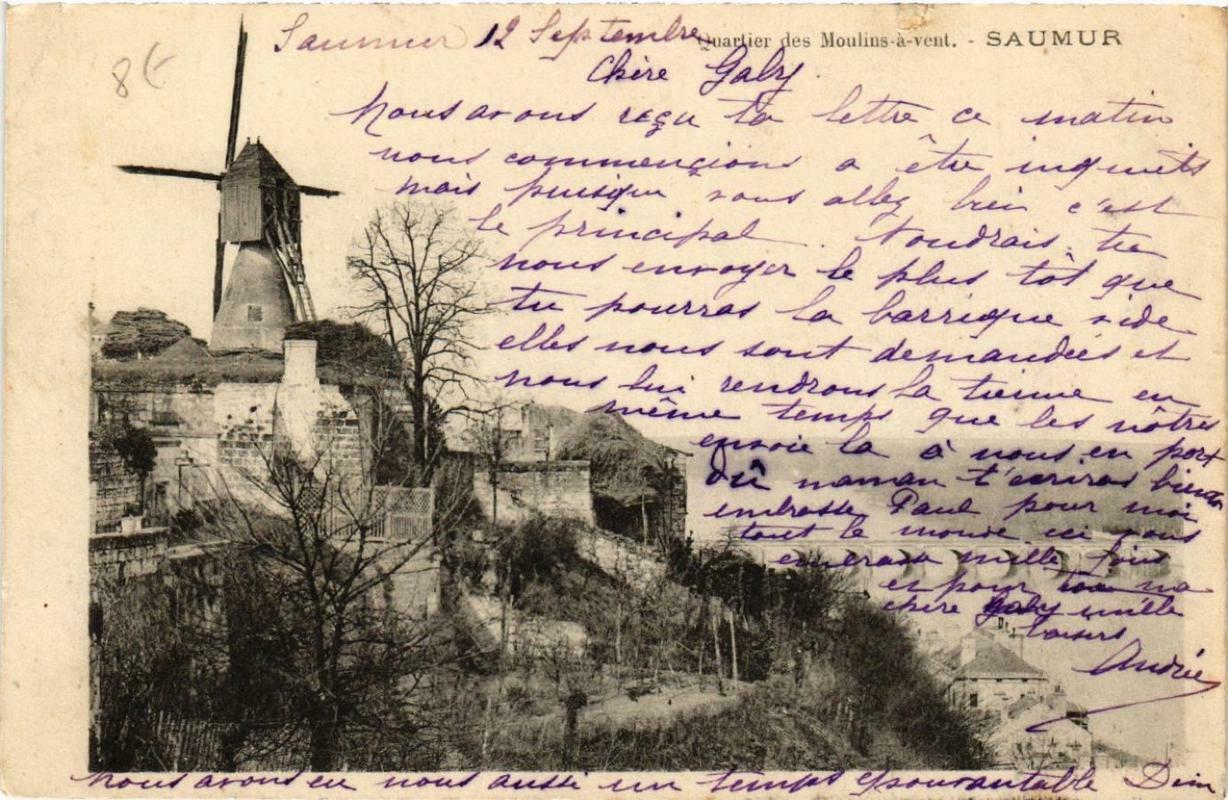 8€
Saumur 12 Septembre
Quartier des Moulins-à-vent. - SAUMUR
Chère Gaby
Nous avons reçu ta lettre ce matin
nous commencions a être inquiets
mais puisque vous allez bien c'est
le principal. Voudrais tu
nous envoyer le plus tôt que
tu pourras la barrique vide
elles nous sont demandées et
nous lui rendrons la tienne en
même temps que les nôtres
envoie la à nous en port
dû maman t'ecriras bientôt
embrasse Paul pour moi
tout le monde ici vous
embrasse mille fois
et pour toi ma
chère Gaby mille
baisers
Andrée
Nous avons eu nous aussi un temps épouvantable Dim